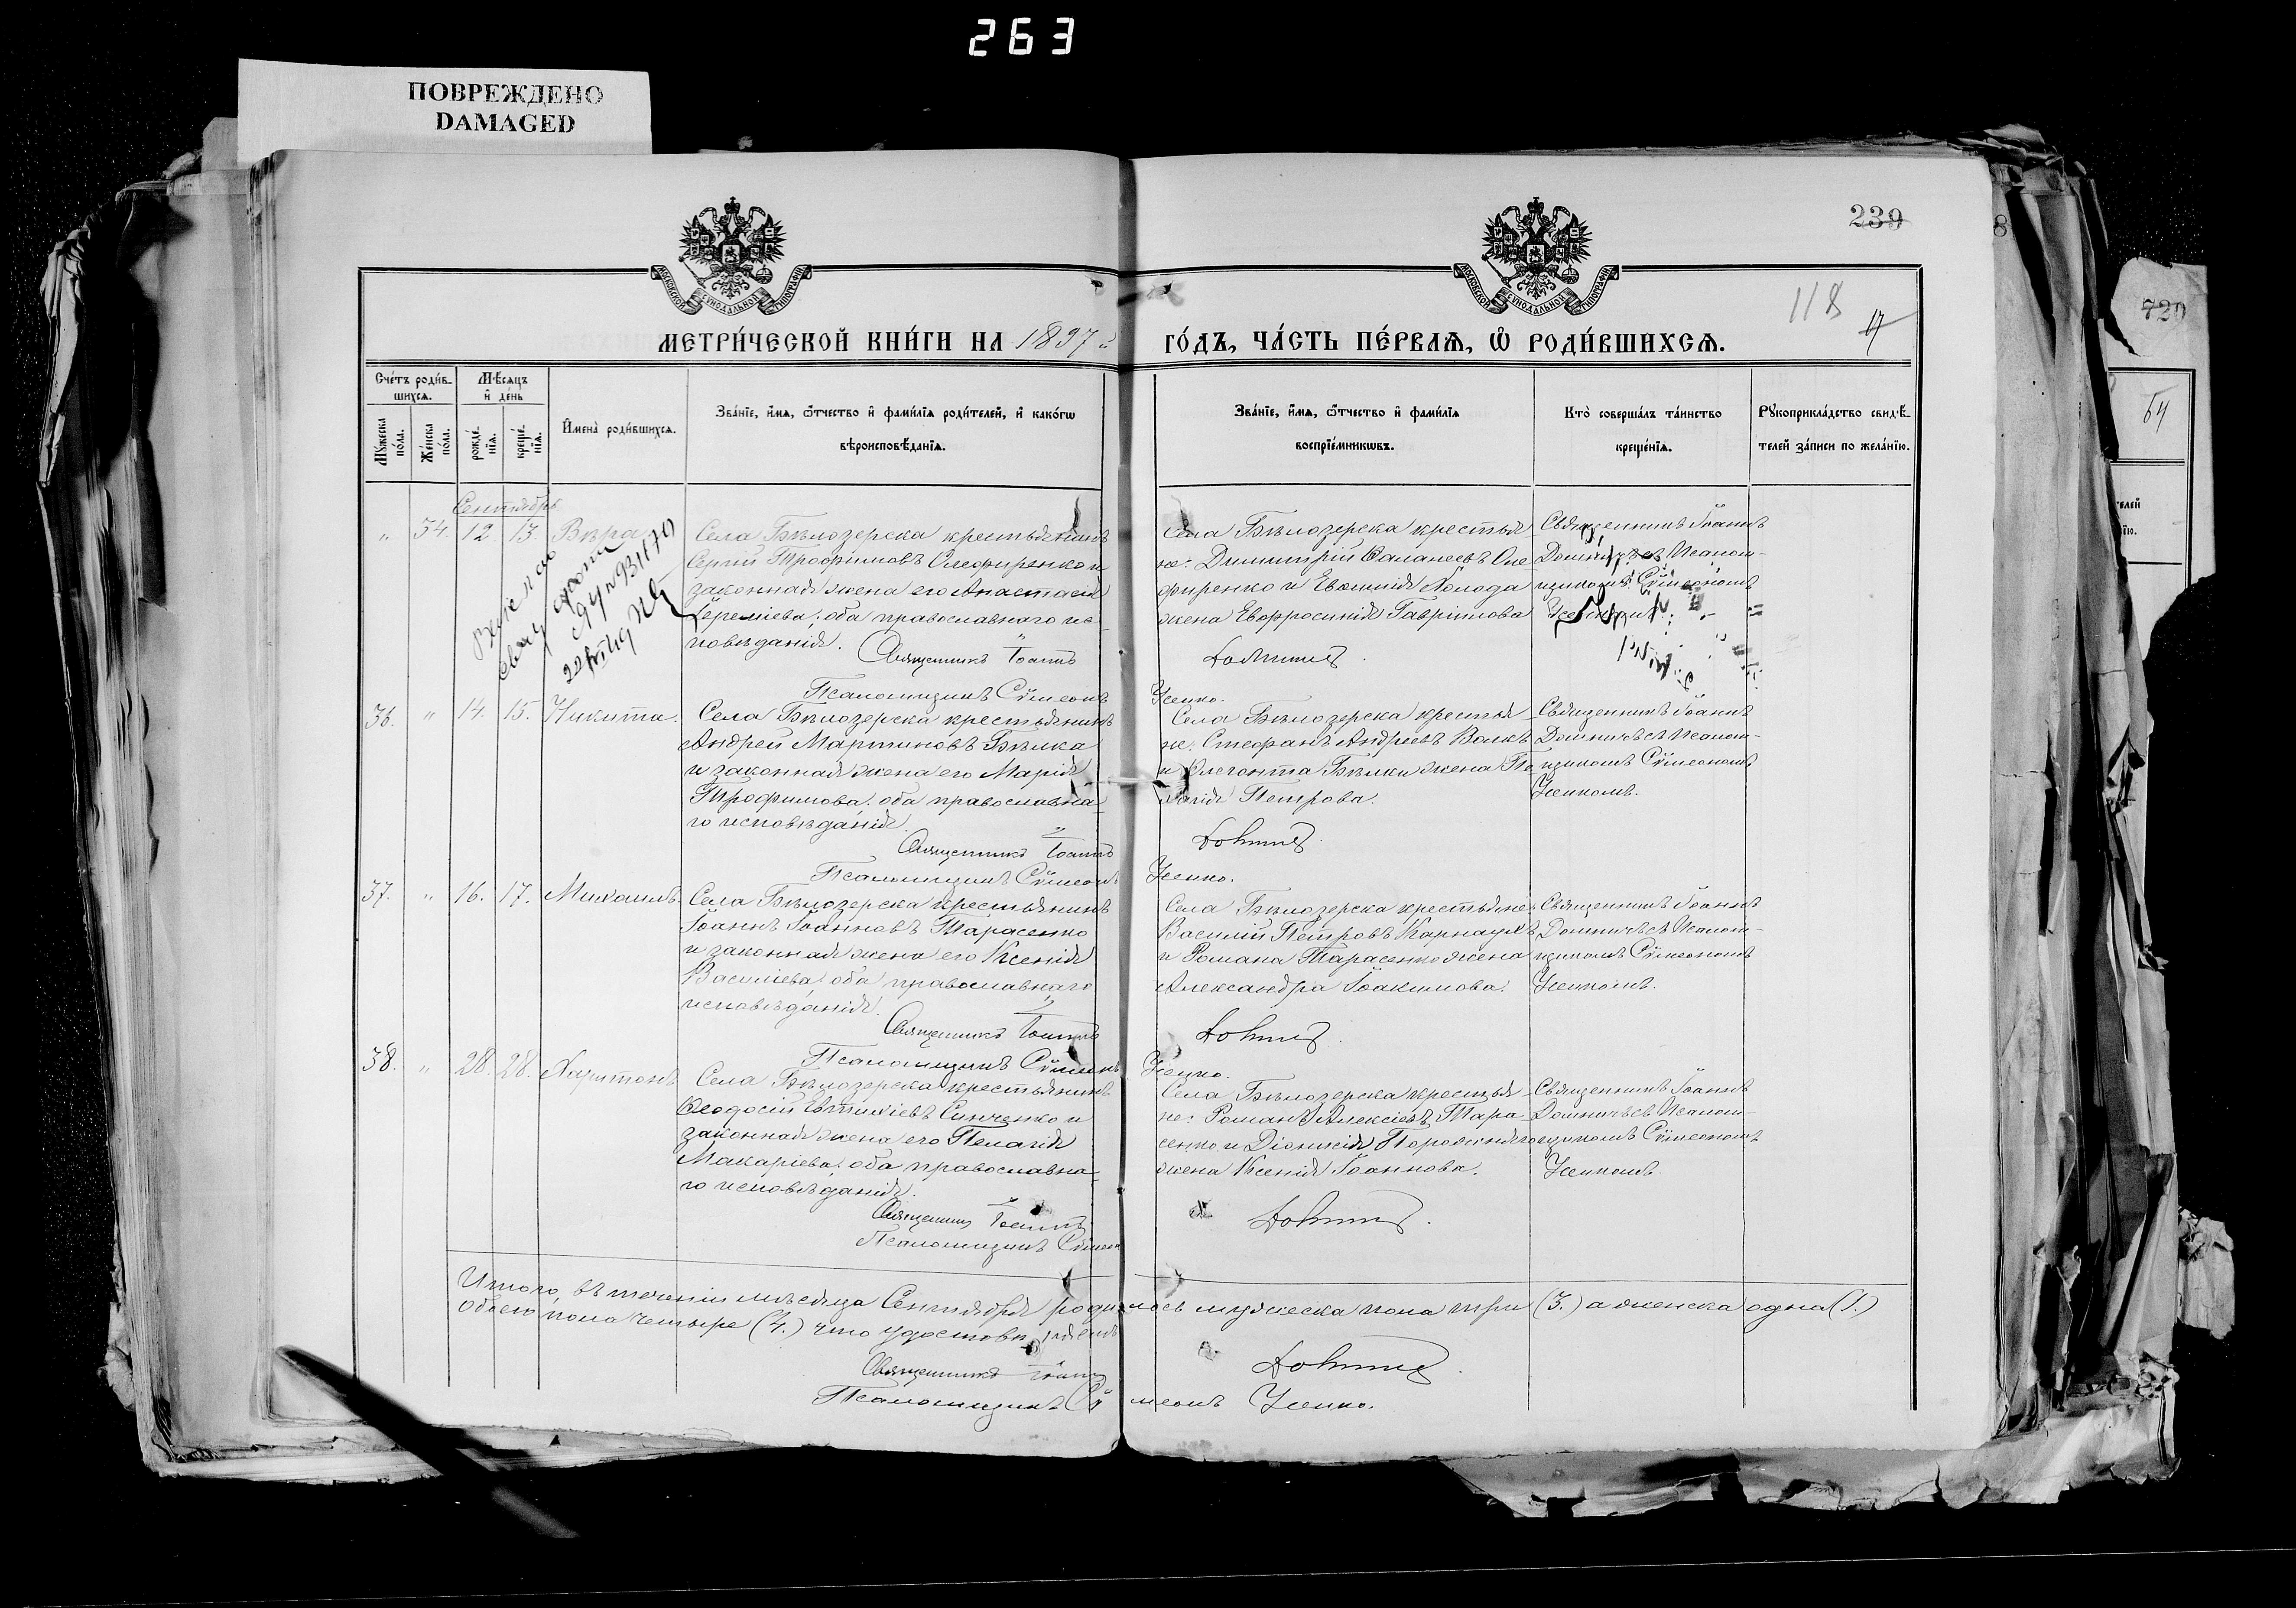 263
ПОВРЕЖДЕНО
DAMAGED
239
118
17
МЕТРИ́ЧЕСКОЙ КНИ́ГИ НА 1897 ГО́ДЪ, ЧА́СТЬ ПЕ́РВАѦ, Ѡ҆ РОДИ́ВШИХСѦ.
МОСКОВСКОЙ СѴНОДАЛЬНОЙ ТИПОГРАФІИ
МОСКОВСКОЙ СѴНОДАЛЬНОЙ ТИПОГРАФІИ
Сче́тъ роди́в-
шихсѧ.
Мꙋ́жеска по́ла.
Же́нска по́ла.
Мѣ́сѧцъ
и҆ де́нь
рожде́-
нїѧ.
креще́-
нїѧ.
И҆мена̀ роди́вшихсѧ.
Зва́нїе, и҆́мѧ, ѻ҆́тчество и҆ фами́лїѧ роди́телей, и҆ како́гѡ
вѣроисповѣ́данїѧ.
Зва́нїе, и҆́мѧ, ѻ҆́тчество и҆ фами́лїѧ
воспрїе́мникѡвъ.
Кто̀ соверша́лъ та́инство
креще́нїѧ.
Рꙋкоприкла́дство свидѣ́-
телей за́писи по жела́нїю.
Сентябрь
" 34. 12 13. Вѣра
Села Бѣлозерска крестьянинъ
Сергій Трофимовъ Олефиренко и
законная жена его Анастасія
Іереміева; оба православнаго ис-
повѣданія. Священникъ Іоаннъ
Псаломщикъ Сѵмеонъ
Села Бѣлозерска крестья-
не: Димитрій Фалалеевъ Оле
фиренко и Евѳимія Холода
жена Евфросинія Гаврилова
Усенко.
Священникъ Іоаннъ
Псалом-
щикомъ Сѵмеономъ
36. " 14. 15. Никита.
Села Бѣлозерска крестьянинъ
Андрей Мартиновъ Бѣлка
и законная жена его Марія
Трофимова: оба православна-
го исповѣданія.
Священникъ Іоаннъ
Псаломщикъ Сѵмеонъ
Села Бѣлозерска крестья-
не: Стефанъ Андреевъ Волкъ
и Бѣлки жена Пе-
лагія Петрова.
Усенко.
Священникъ Іоаннъ
Псалом-
щикомъ Сѵмеономъ
Усенкомъ.
37. " 16. 17. Михаилъ.
Села Бѣлозерска крестьянинъ
Іоаннъ Іоанновъ Тарасенко
и законная жена его Ксенія
Василіева: оба православнаго
исповѣданія.
Священникъ Іоаннъ
Псаломщикъ Сѵмеонъ
Села Бѣлозерска крестьяне
Василій Петровъ Карнаухъ
и Романа Тарасенко жена
Александра Іоакимова.
Усенко.
Священникъ Іоаннъ
Псалом-
щикомъ Сѵмеономъ
Усенкомъ.
38. " 28. 28. Харитонъ
Села Бѣлозерска крестьянинъ
Ѳеодосій Евтихіевъ Синченко и
законная жена его Пелагія
Макаріева: оба православна-
го исповѣданія.
Священникъ Іоаннъ
Псаломщикъ Сѵмеонъ
Села Бѣлозерска крестья-
не: Романъ Алексіевъ Тара-
сенко и Діонисія
жена Ксенія Іоаннова.
Священникъ Іоаннъ
Псалом-
щикомъ Сѵмеономъ
Усенкомъ.
Итого, въ теченіи мѣсяца Сентября родилось мужеска пола три (3.) а женска одна (1.)
обоего пола четыре (4.) что удостовѣряемъ
Священникъ Іоаннъ
Псаломщикъ Сѵмеонъ Усенко.
720
64